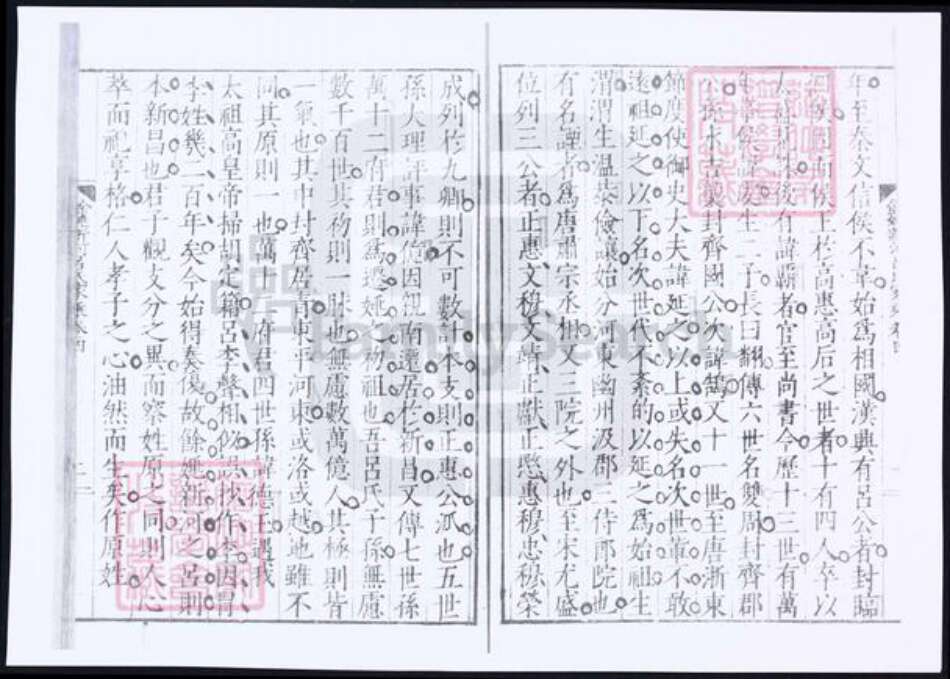 年至秦文信侯不韋始爲相國漢興有呂公者封臨
侯王於高惠高后之世者十有四人卒以
後有諱覇者官至尚書令歷十三世有萬
年生二子長曰翻傳六世名雙周封齊郡
公封齊國公次諱鵠又十一世至唐浙東
節度使御史大夫諱延之以上或失名次世董不敢
遠祖延之以下名次世代不紊的以延之爲始祖生
渭渭生溫恭儉讓始分河東幽州汲郡三侍郎院也
有名諲者爲唐肅宗丞相又三院之外也至宋尤盛
位列三公者正惠文穆文靖正獻正愍惠穆忠穆榮
成列於九卿則不可數計本支則正惠公派也五世
孫大理評事諱億因祝南遷居於新昌又傳七世孫
萬十二府君則爲遷姚之初祖也吾呂氏子孫無慮
數千百世其初則一脉也無慮數萬億人其極則皆
一氣也其中封齊居青東平河東或洛或越地雖不
同其原則一也萬十二府君四世孫諱德玉遇我
太祖高皇帝掃胡定籍呂李聲相似誤抄作李因冐
李姓幾二百年矣今始得奏復故餘姚新河之呂則
本新昌也君子觀支分之異而察姓原之同則人心
萃而祀享格仁人孝子之心油然而生矣作原姓